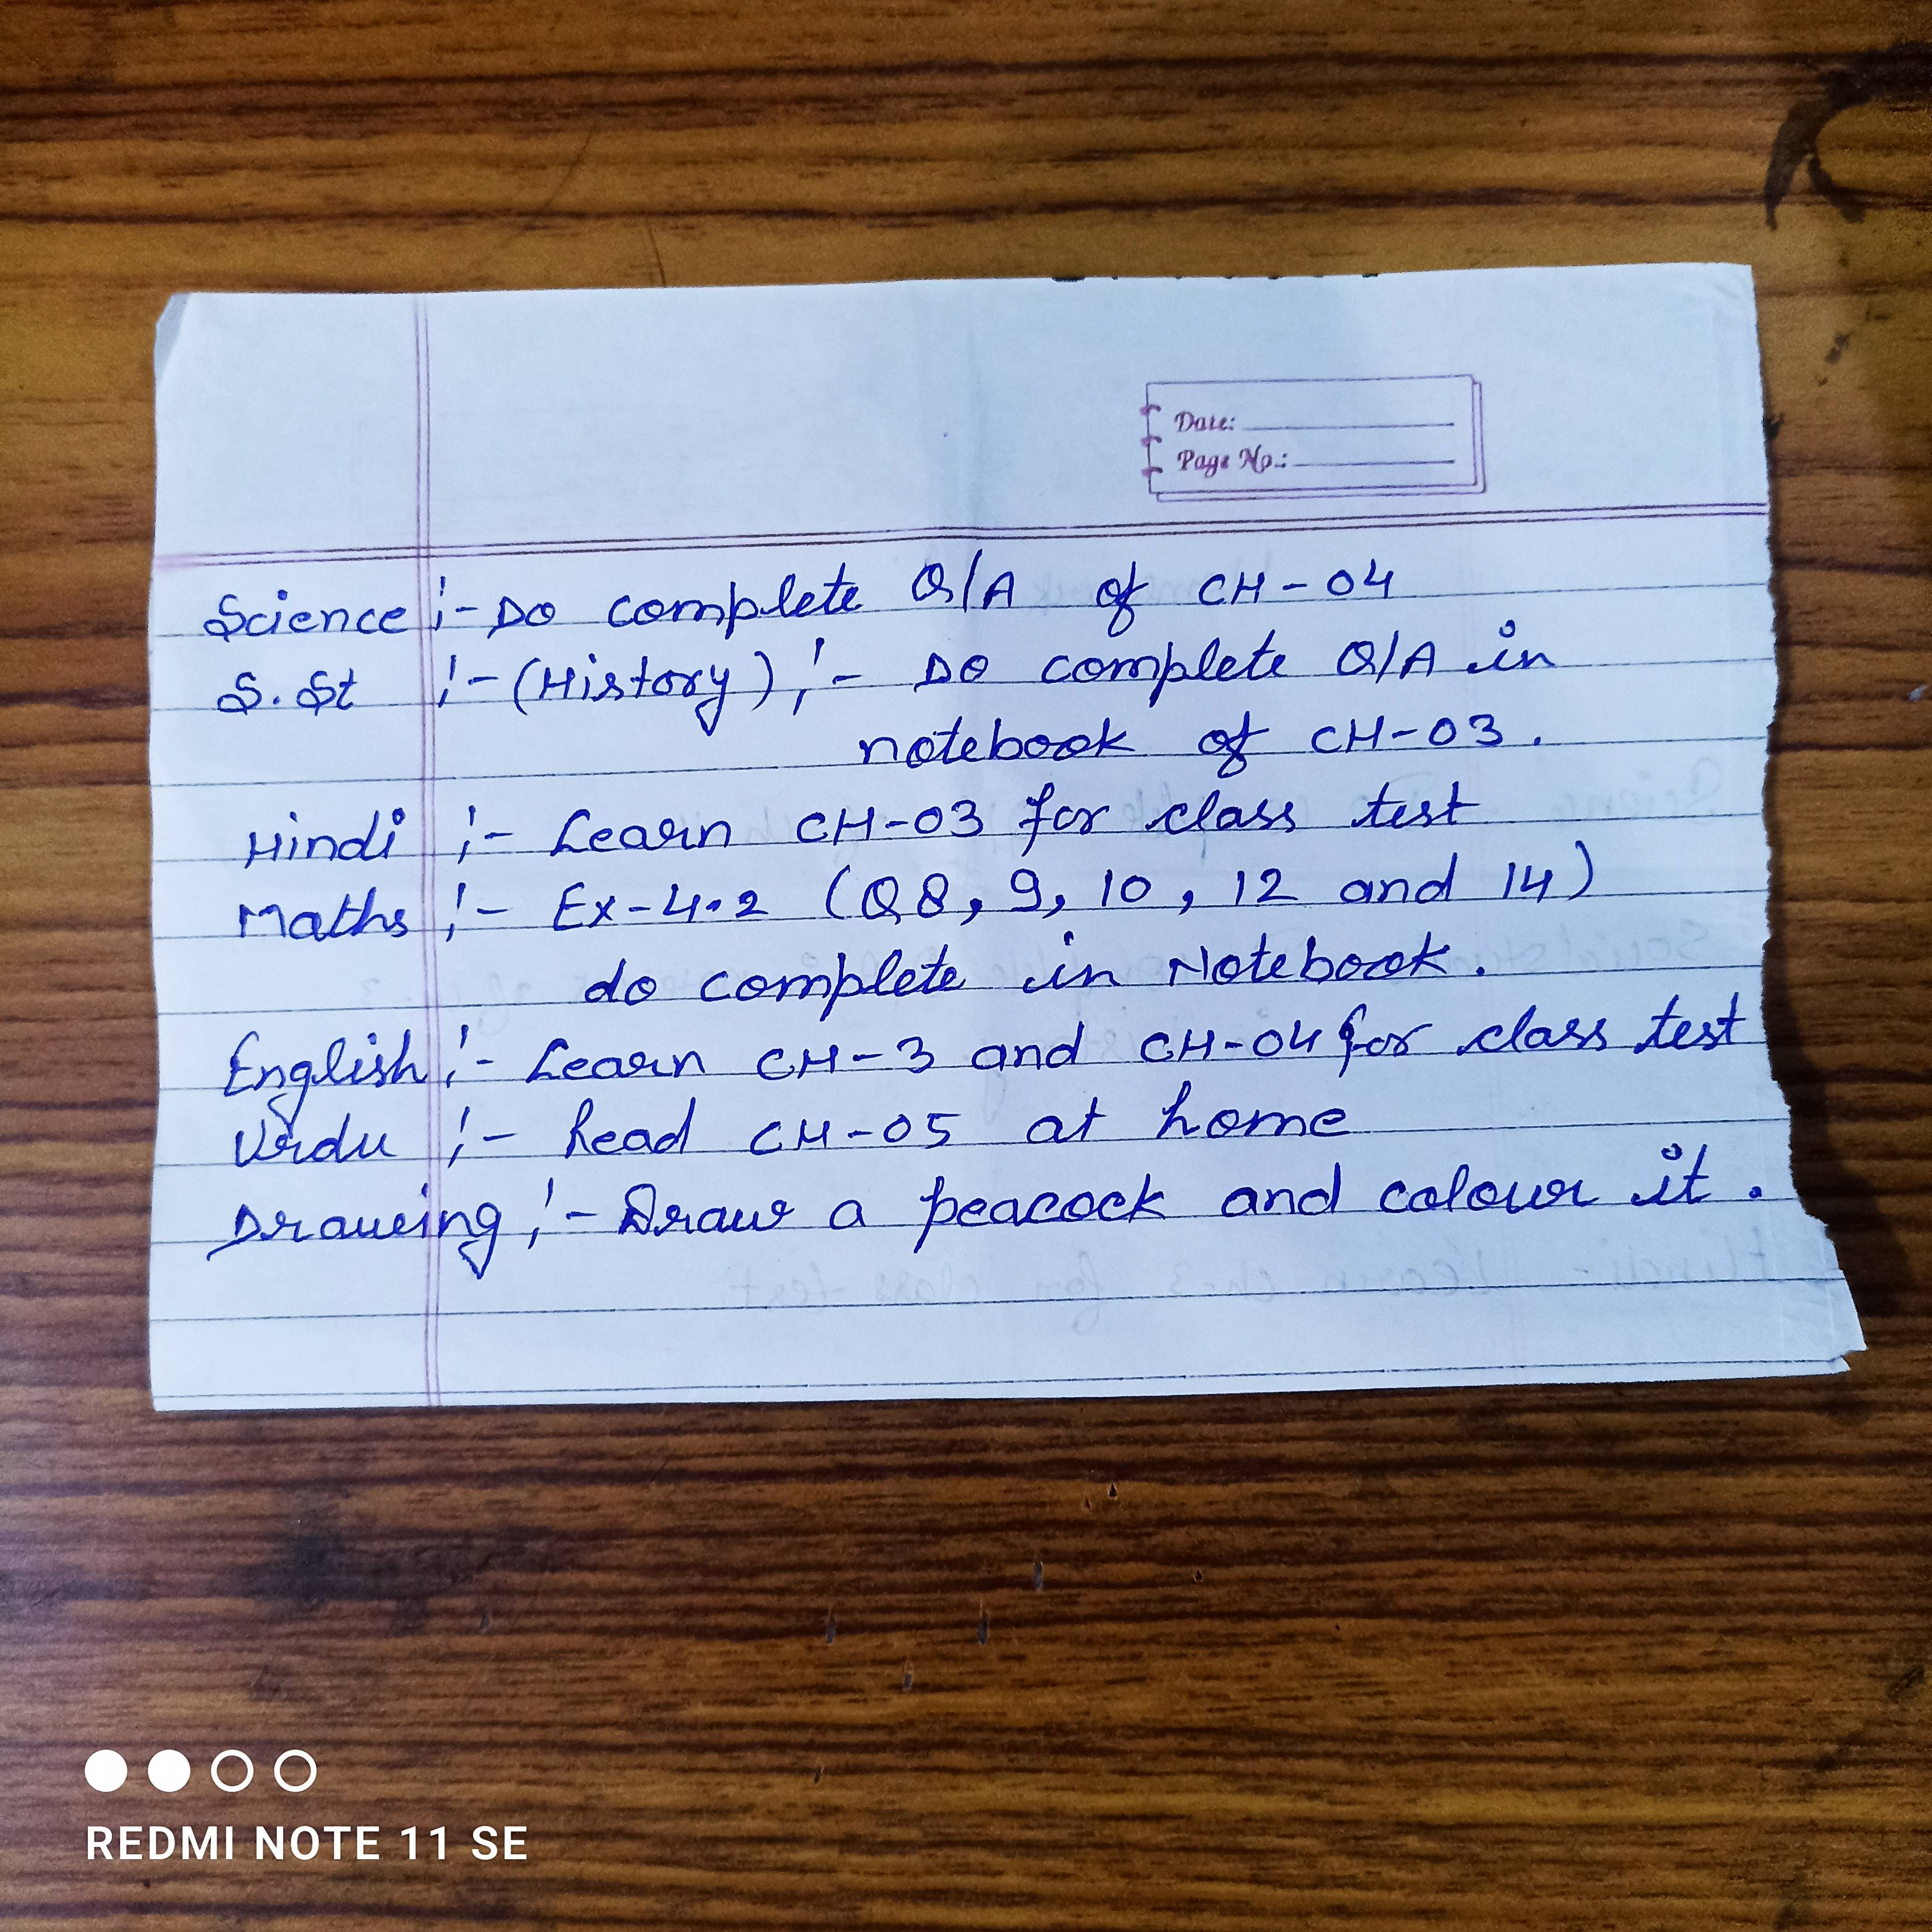 Date:
Page No.:
Science :- Do complete Q/A of CH-04
S.St :- (History) :- Do complete Q/A in
notebook of CH-03.
Hindi :- Learn CH-03 for class test
Maths :- Ex-4.2 (Q8, 9, 10, 12 and 14)
do complete in Notebook.
English :- Learn CH-3 and CH-04 for class test
Urdu :- Read CH-05 at home
Drawing :- Draw a peacock and colour it.
REDMI NOTE 11 SE